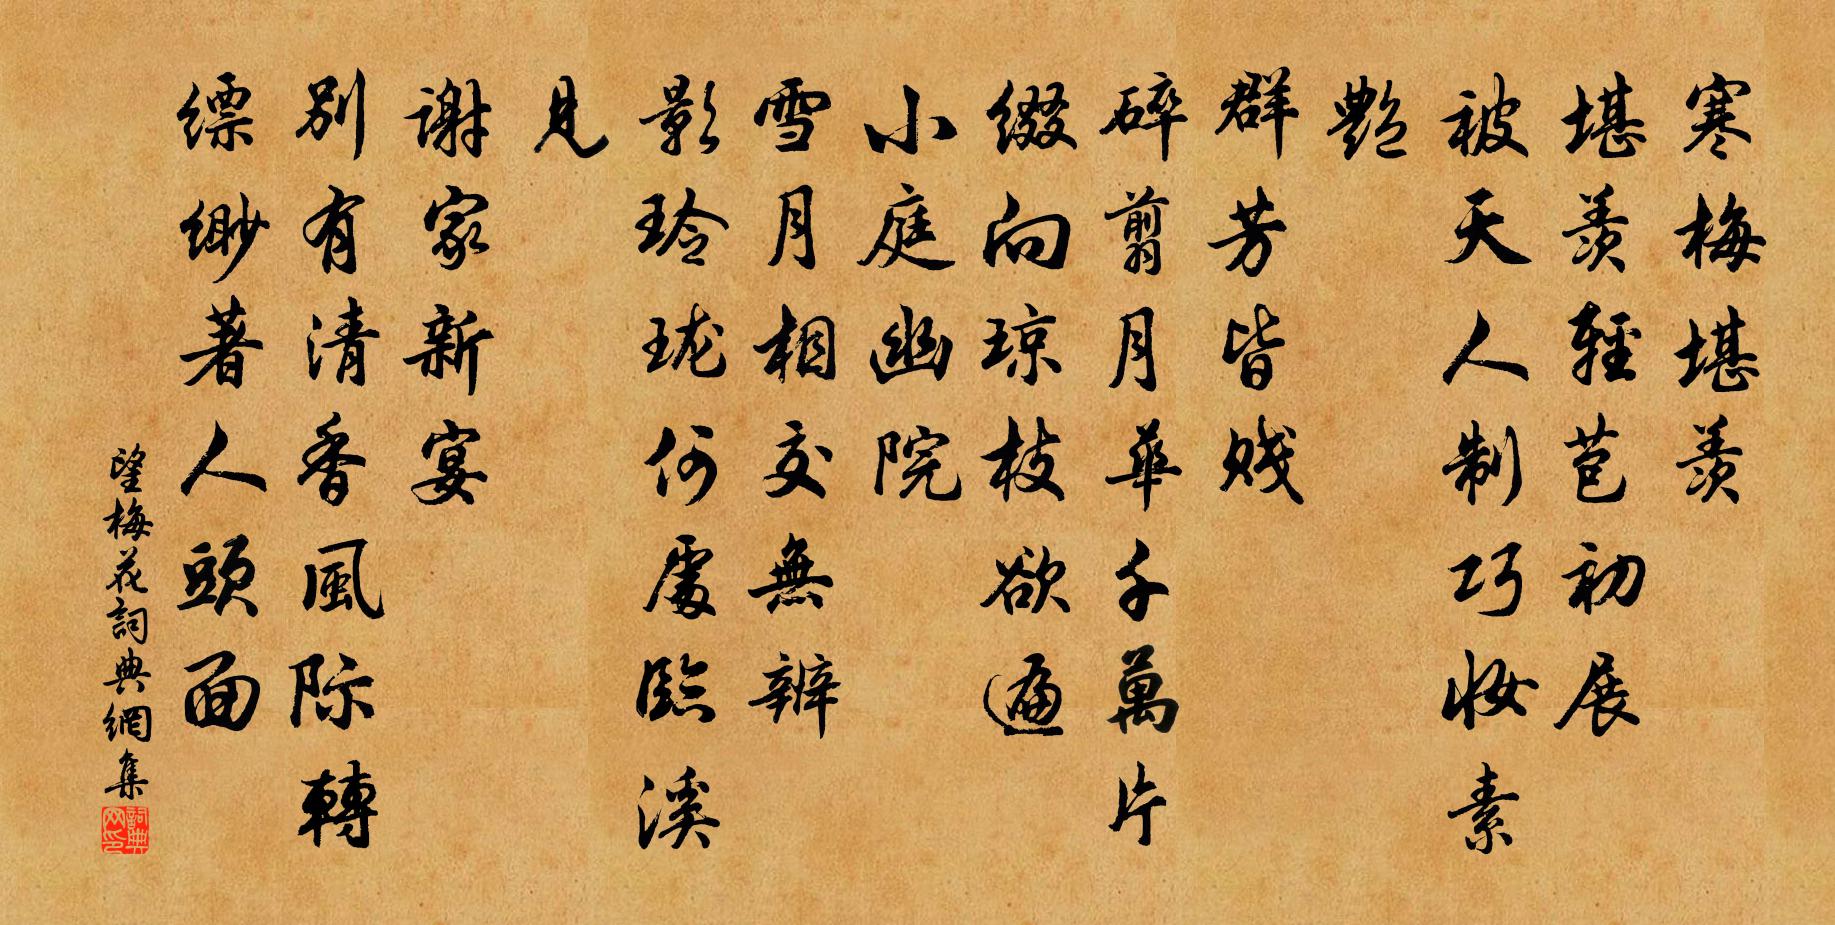 寒梅堪羨
堪羨輕苞初展
被天人制巧妝素
艷
群芳皆賤
碎翦月華千萬片
綴向瓊枝欲遍
小庭幽院
雪月相交無辨
影玲瓏何處臨溪
見
謝家新宴
別有清香風际轉
縹緲著人頭面
望梅花詞典網集
詞典網印